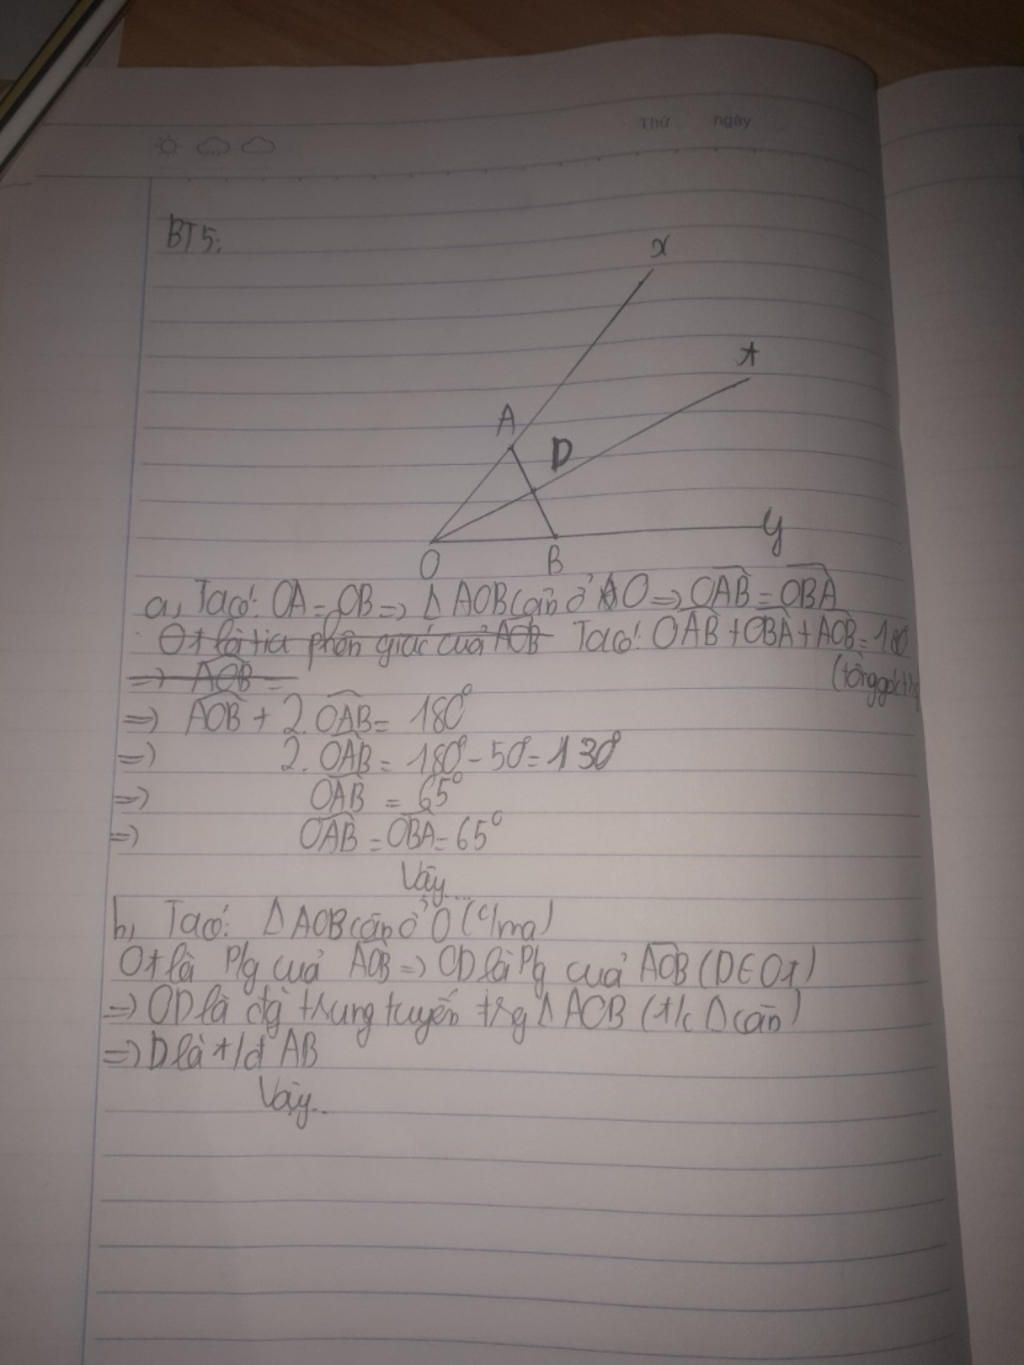 Thứ ngày
BT5:
x
t
A
D
y
O
B
a, Ta có: OA = OB => Δ AOB cân ở O => OAB = OBA
Ot là tia phân giác của AOB Ta có: OAB + OBA + AOB = 180
=> AOB = (tổng góc
=> AOB + 2. OAB = 180°
=> 2. OAB = 180° - 50° = 130°
=> OAB = 65°
=> OAB = OBA = 65°
Vậy...
b, Ta có: Δ AOB cân ở O (c/ma)
Ot là P/g cuả AOB => OD là P/g cuả AOB (D∈Ot)
=> OD là đg trung tuyến trg Δ AOB (t/c Δ cân)
=> D là t/đ AB
Vậy..